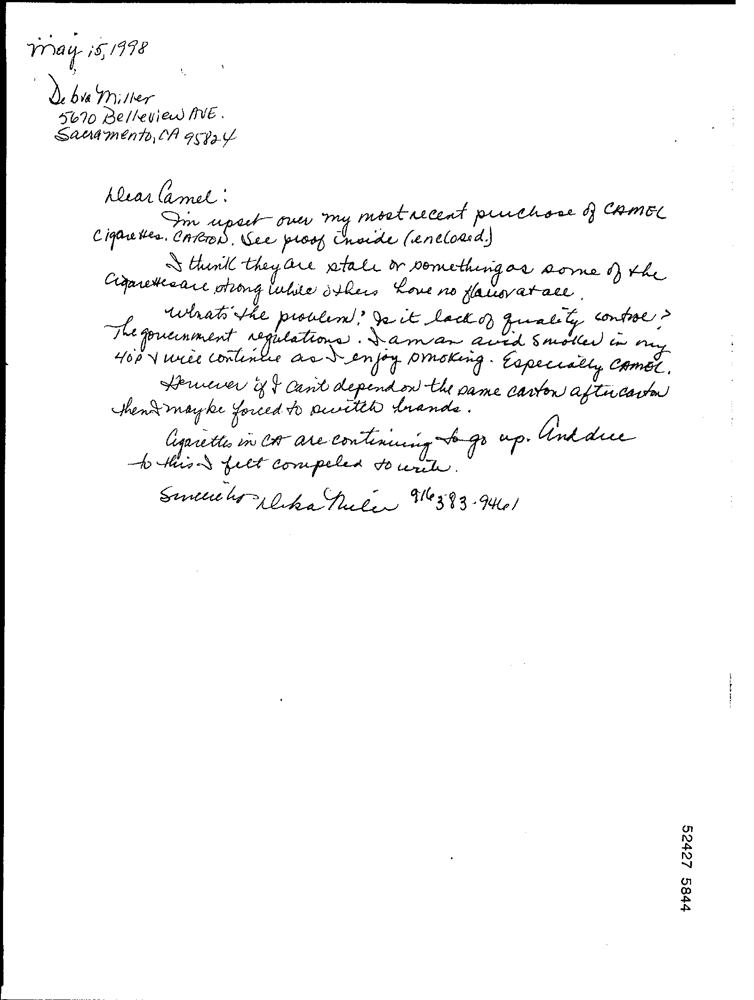 May 15, 1998
Debra Miller
5670 Belleview AVE.
Sacramento, CA 95824
Dear Camel:
I'm upset over my most recent purchase of CAMEL
Cigarettes. CARTON. See proof inside (enclosed.)
I think they are stale or something as some of the
Cigarettes are strong while others have no flavor at all.
What's the problem? Is it lack of quality control?
The government regulations. I am an avid Smoker in my
40's & will continue as I enjoy smoking. Especially CAMEL.
However if I can't depend on the same carton after carton
then I may be forced to switch brands.
Cigarettes in CA are continuing to go up. And due
to this I felt compeled to write.
Sincerely Debra Miller 916 383-9461
52427 5844